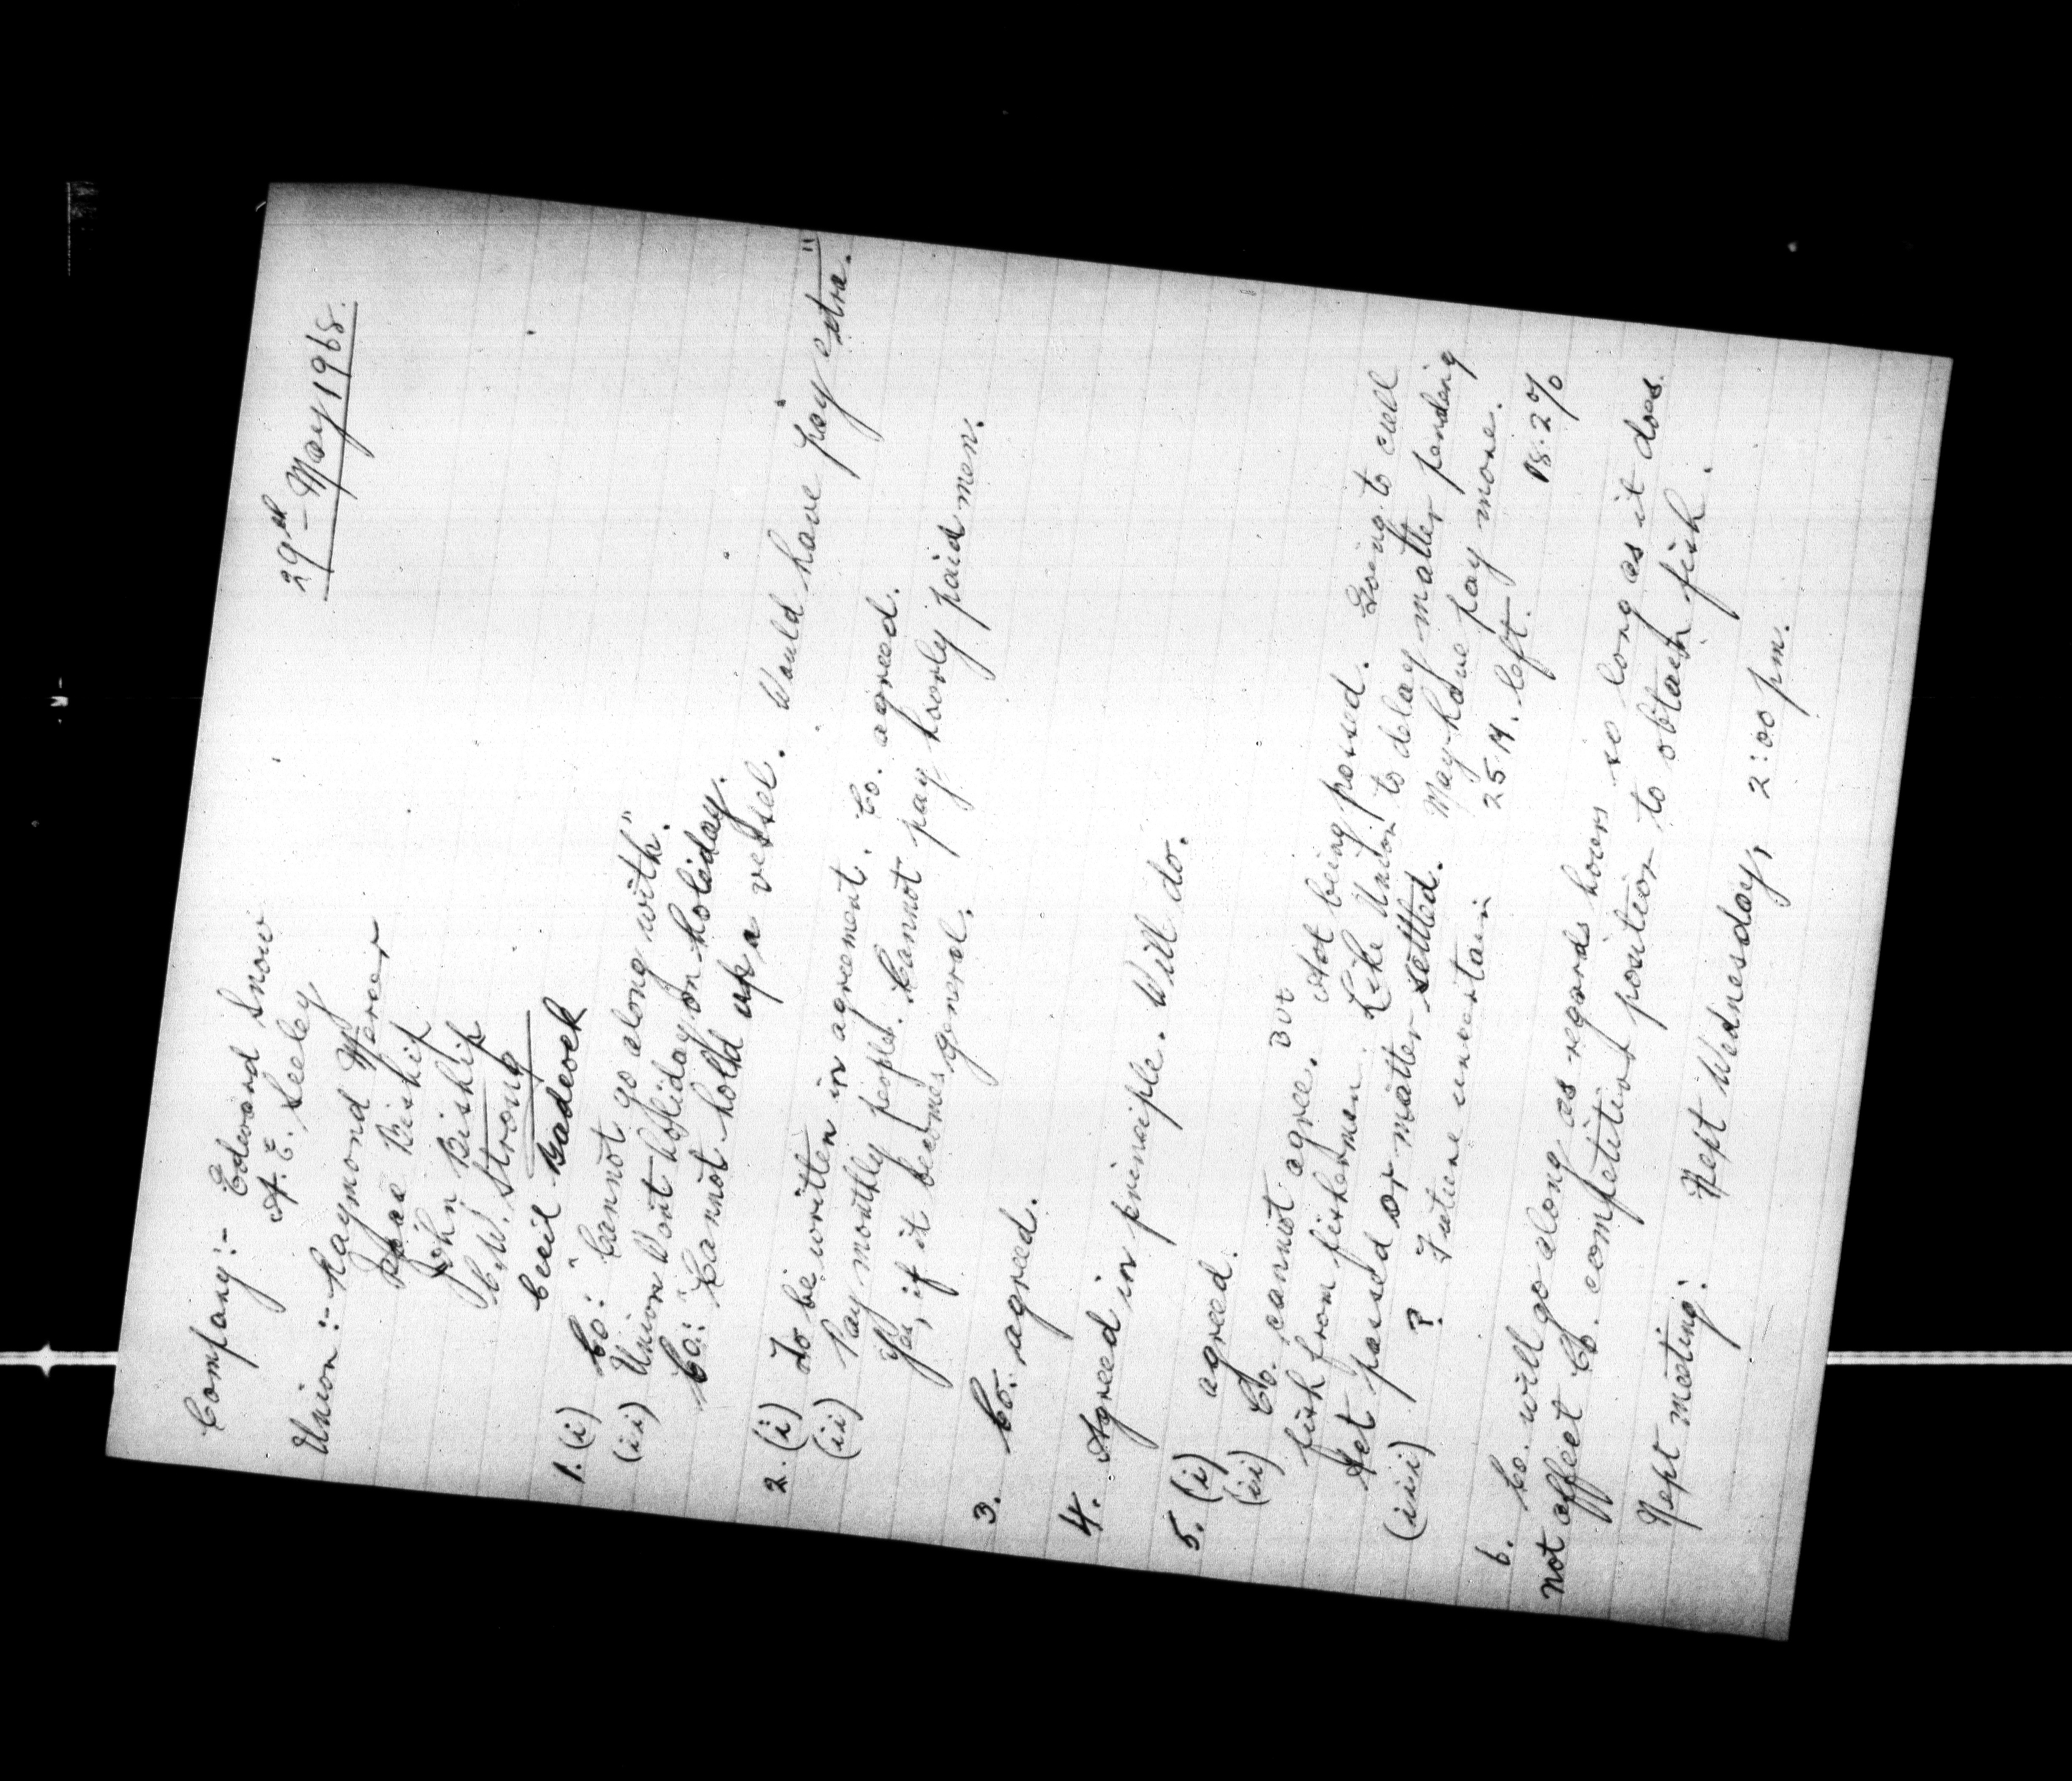 29th May 1968.
Company:- Edward Snow
A. E. Seeley
Union:- Raymond Mercer
Isaac Biship
John Biship
C. W. Strong
Cecil Badcock
1. (i) Co: "Cannot go along with."
(ii) Union Want holiday on holiday.
Co: "Cannot hold up a vessel. Would have pay extra."
2. (i) To be written in agreement. Co. agreed.
(ii) Pay monthly people. Cannot pay hourly paid men.
Yes, if it becomes general.
3. Co. agreed.
4. Agreed in principle. Will do.
5. (i) agreed.
(ii) Co. cannot agree. But Act being passed. Going to cull
fish from fishermen. Like Union to delay matter pending
Act passed or matter settled. May have pay more.
(iii) ? Future uncertain 25 M. left. 18.2%
6. Co. will go along as regards hours so long as it does
not affect Co. competitive position to obtain fish.
Next meeting: Next Wednesday, 2:00 pm.